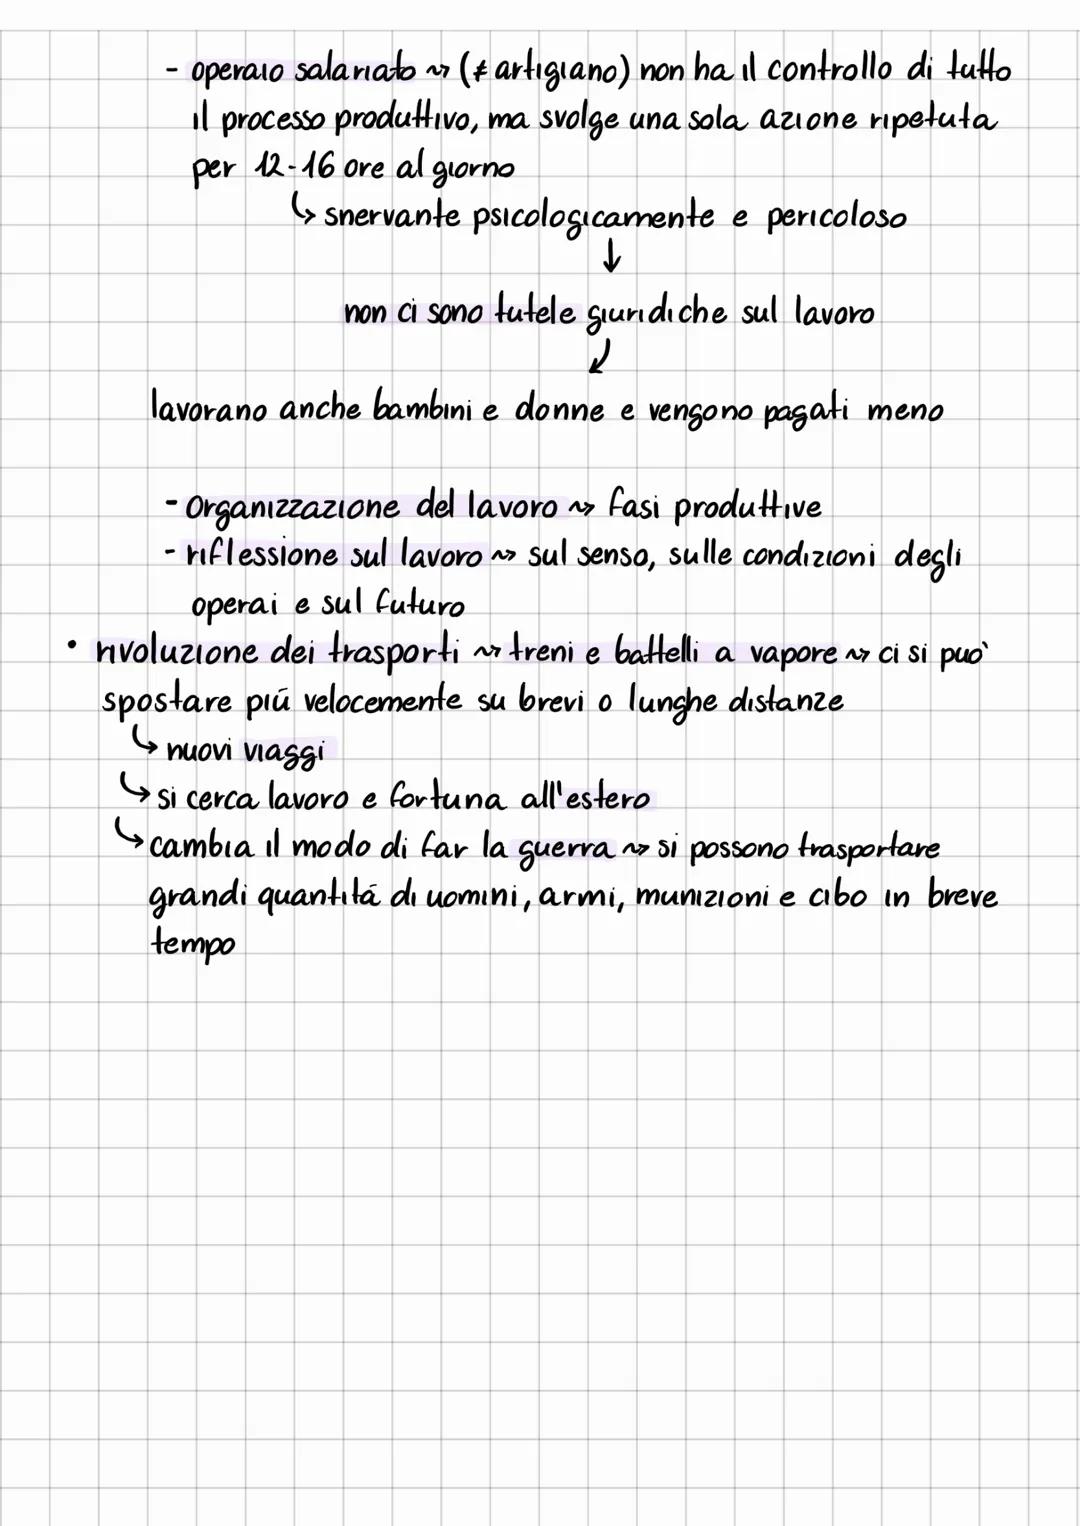 - operaio salariato ~> (≠ artigiano) non ha il controllo di tutto
il processo produttivo, ma svolge una sola azione ripetuta
per 12-16 ore al giorno
↳ snervante psicologicamente e pericoloso
↓
non ci sono tutele giuridiche sul lavoro
↙
lavorano anche bambini e donne e vengono pagati meno
- Organizzazione del lavoro ~> fasi produttive
- riflessione sul lavoro ~> sul senso, sulle condizioni degli
operai e sul futuro
• rivoluzione dei trasporti ~> treni e battelli a vapore ~> ci si può
spostare piú velocemente su brevi o lunghe distanze
↳ nuovi viaggi
↳ si cerca lavoro e fortuna all'estero
↳ cambia il modo di far la guerra ~> si possono trasportare
grandi quantitá di uomini, armi, munizioni e cibo in breve
tempo